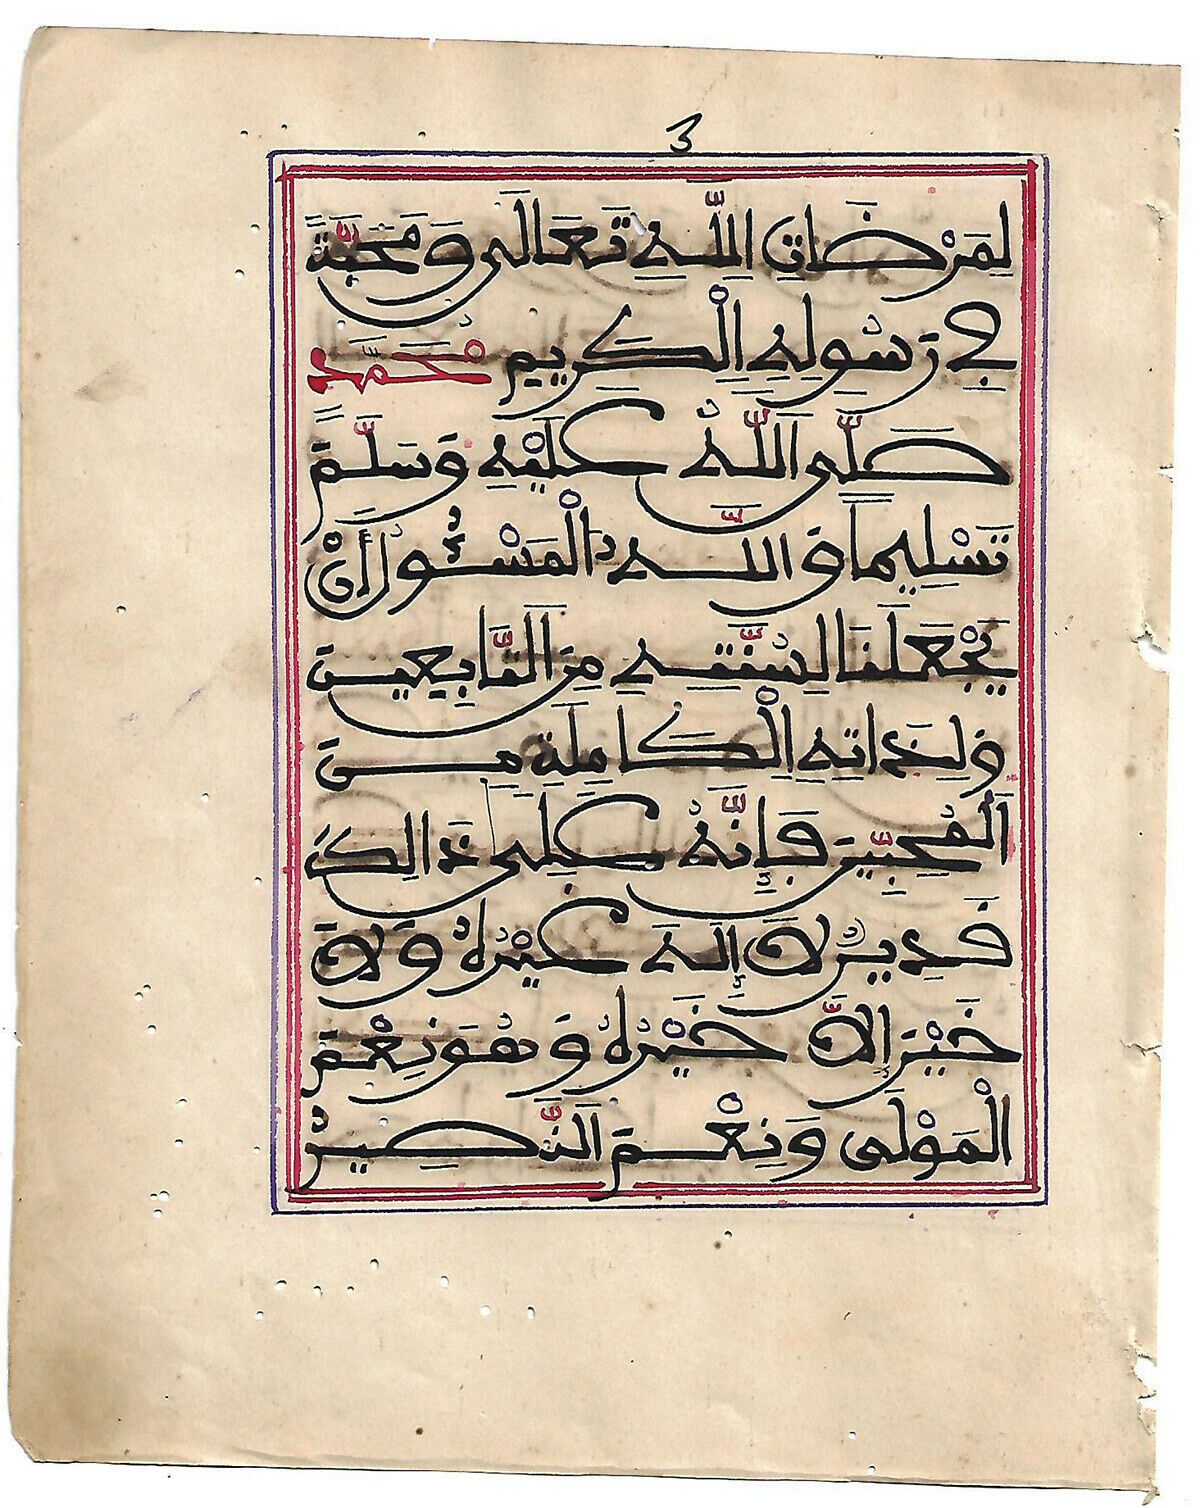 3
لِمَرْضَاتِ اِللَّهِ تَعَالَى وَمَحَبَّةً
فِي رَسُولِهِ اِلْكَرِيمِ مُحَمَّدٍ
صَلَّى اَللَّهُ عَلَيْهِ وَسَلَّمَ
تَسْلِيماً وَاللَّهُ اُلْمَسْـُٔولُ أَنْ
يَجْعَلَنَا لِسُنَّتِهِ مِنَ اَلتَّابِعِينَ
وَلِذَاتِهِ اِلْكَامِلَةِ مِنَ
اَلْمُحِبِّينَ فَإِنَّهُ عَلَى ذَالِكَ
قَدِيرٌ لَا إِلَهَ غَيْرُهُ وَلَا
خَيْرَ إِلَّا خَيْرُهُ وَهُوَ نِعْمَ
اَلْمَوْلَى وَنِعْمَ اَلنَّصِيرُ